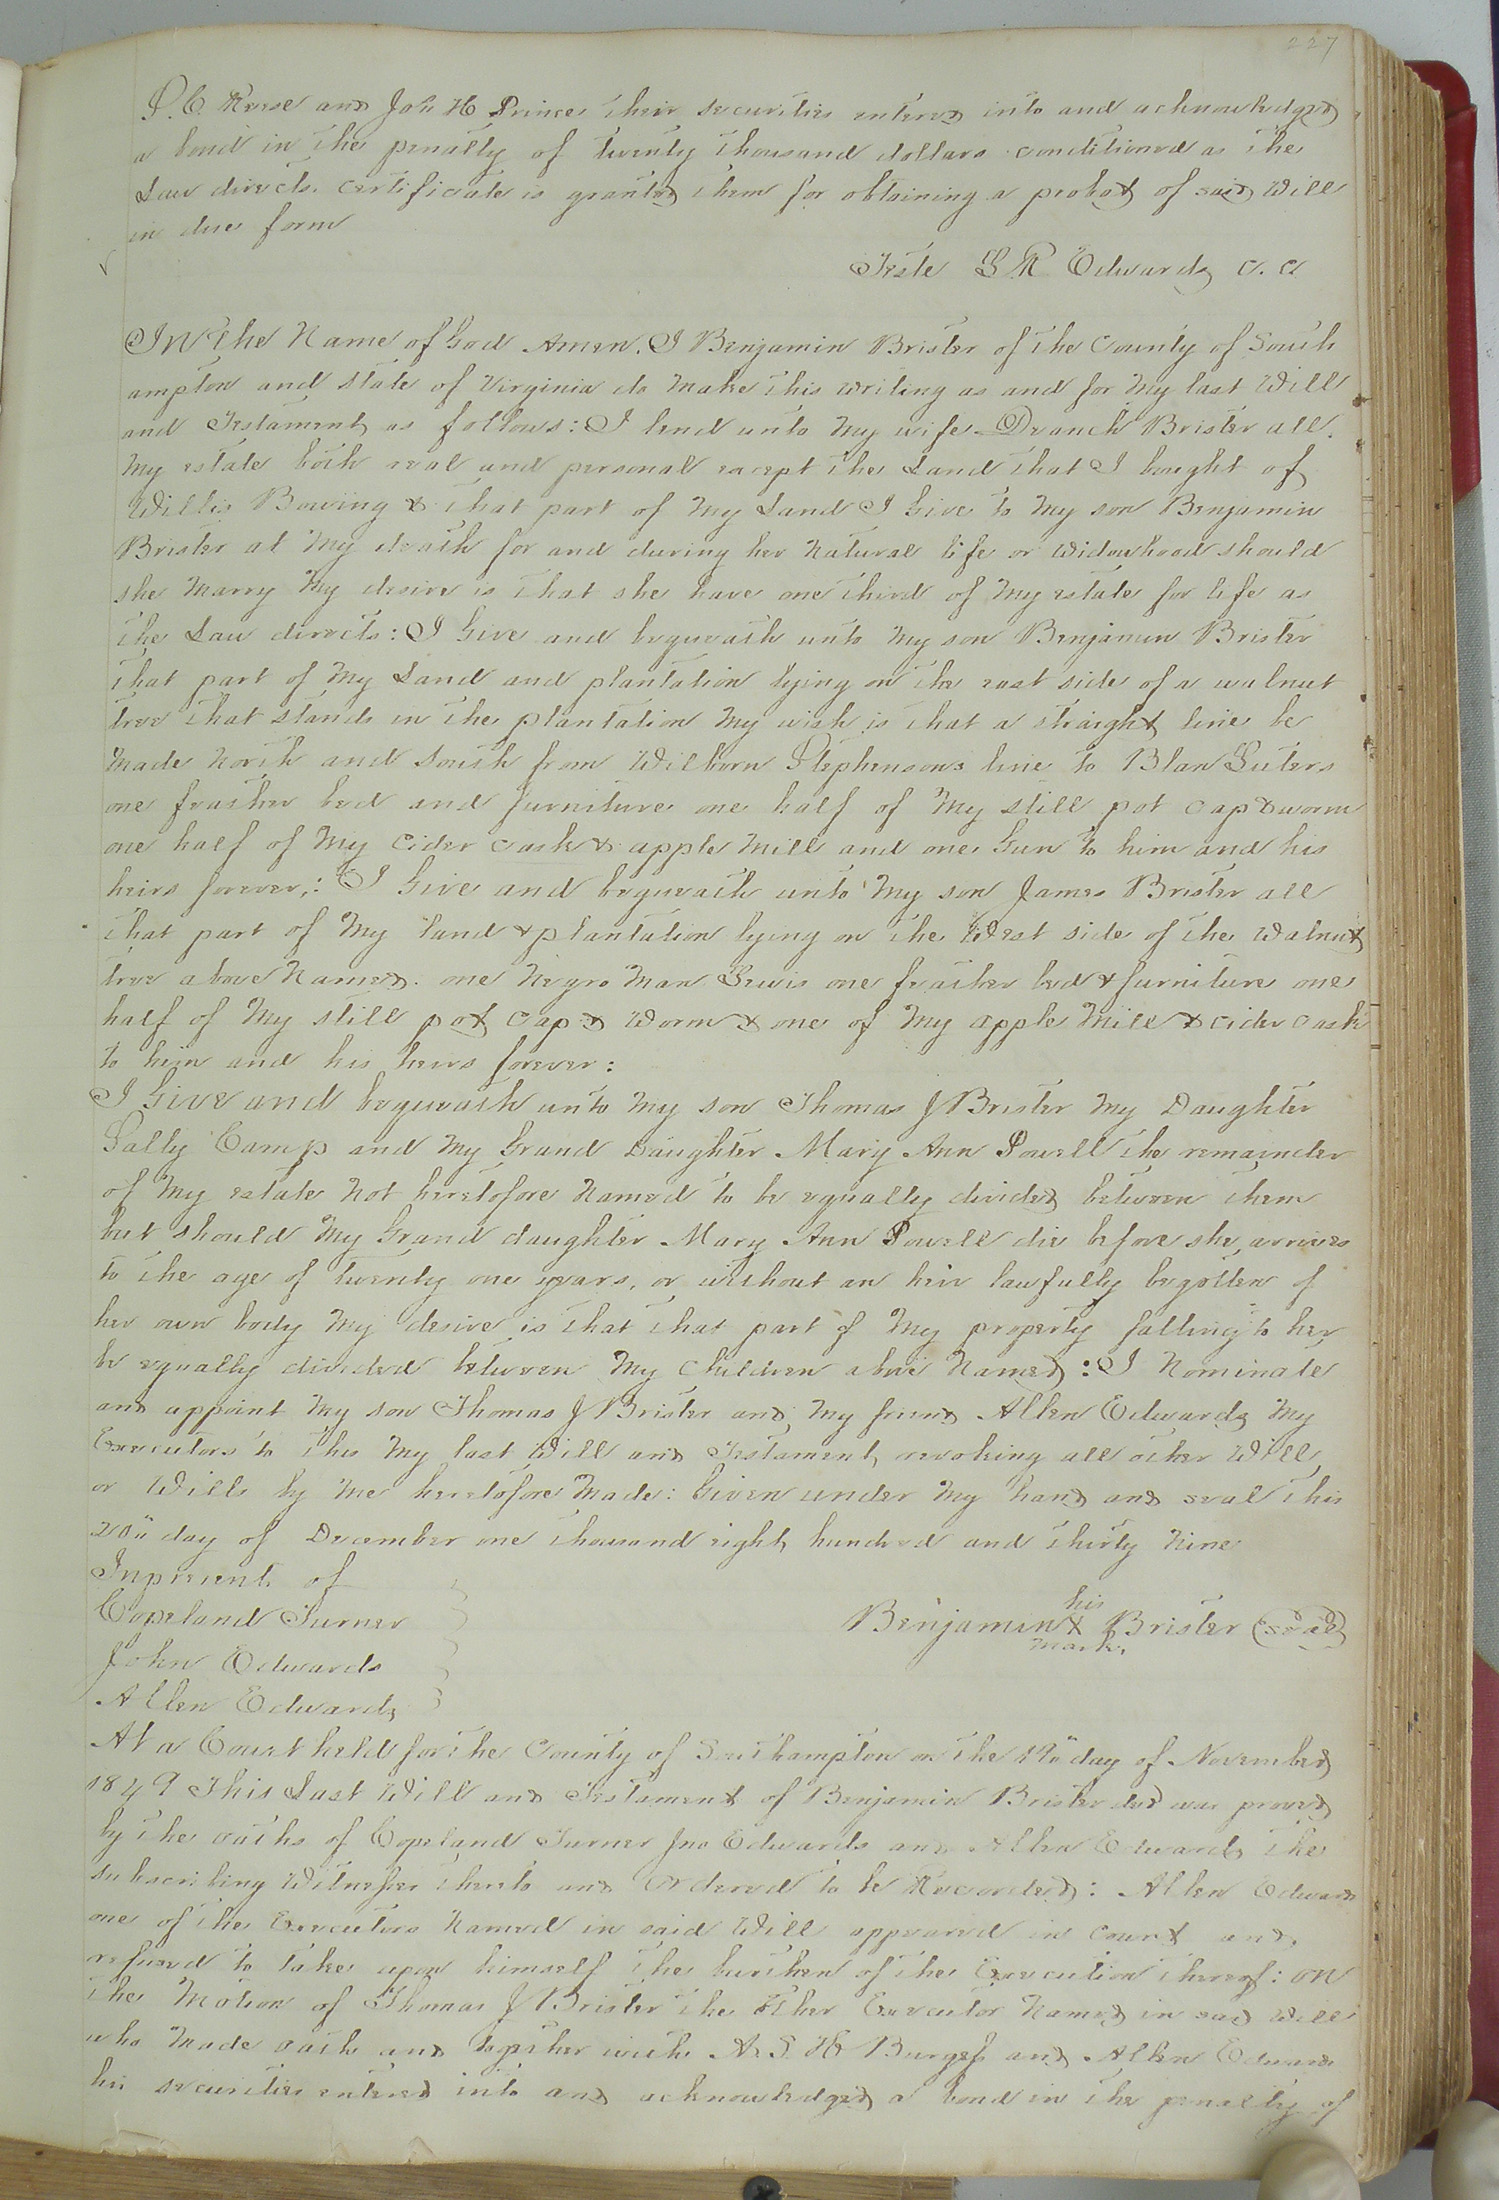 227
P. C. Reese and Jas H Prince their securities entered into and acknowledged
a bond in the penalty of twenty thousand dollars conditioned as the
Law directs. Certificate is granted them for obtaining a probat of said Will
in due form
Teste L R Edwards C. C
In the Name of God Amen. I Benjamin Brister of the County of South
ampton and State of Virginia do make this writing as and for my last Will
and Testament as follows: I lend unto my wife Branch Brister all
my estate both real and personal except the Land that I bought of
Willis Bowing & that part of my Land I Give to my son Benjamin
Brister at my death for and during her natural life or widowhood should
she marry my desire is that she have one third of my estate for life as
the Law directs: I Give and bequeath unto my son Benjamin Brister
that part of my Land and plantation lying on the east side of a walnut
tree that stands in the plantation my wish is that a straight line be
made North and South from Wilborn Stephensons line to Blan Suters
one feather bed and furniture one half of my still pot cap & worm
one half of my Cider Cask & apple mill and one Gun to him and his
heirs forever: I Give and bequeath unto my son James Brister all
that part of my land & plantation lying on the West side of the Walnut
tree above Named. one Negro Man Lewis one feather bed & furniture one
half of my still pot Cap & Worm & one of my apple mill & cider cask
to him and his heirs forever:
I Give and bequeath unto my son Thomas J Brister my Daughter
Sally Camp and my Grand Daughter Mary Ann Powell the remainder
of my estate not heretofore named to be equally divided between them
but should my Grand daughter Mary Ann Powell die before she arrives
to the age of twenty one years, or without an heir lawfully begotten of
her own body my desire is that that part of my property falling to her
be equally divided between my children above Named: I Nominate
and appoint my son Thomas J Brister and my friend Allen Edwards my
Executors to this my last Will and Testament, revoking all other Will
or Wills by me heretofore made: Given under my hand and seal this
20" day of December one thousand eight hundred and thirty Nine
In presents of
Copeland Turner
his
Benjamin X Brister (seal)
mark.
John Edwards
Allen Edwards
At a Court held for the County of Southampton on the day of November
1849 This Last Will and Testament of Benjamin Brister decd was proved
by the oaths of Copeland Turner Jno Edwards and Allen Edwards the
subscribing Witnesses thereto and Ordered to be Recorded: Allen Edwards
one of the Executors Named in said Will appeared in Court and
refused to take upon himself the burthen of the Execution thereof: On
the Motion of Thomas J Brister the other Executor Named in said Will
who made oath and together with A. S. H Burgess and Allen Edwards
his securities entered into and acknowledged a bond in the penalty of